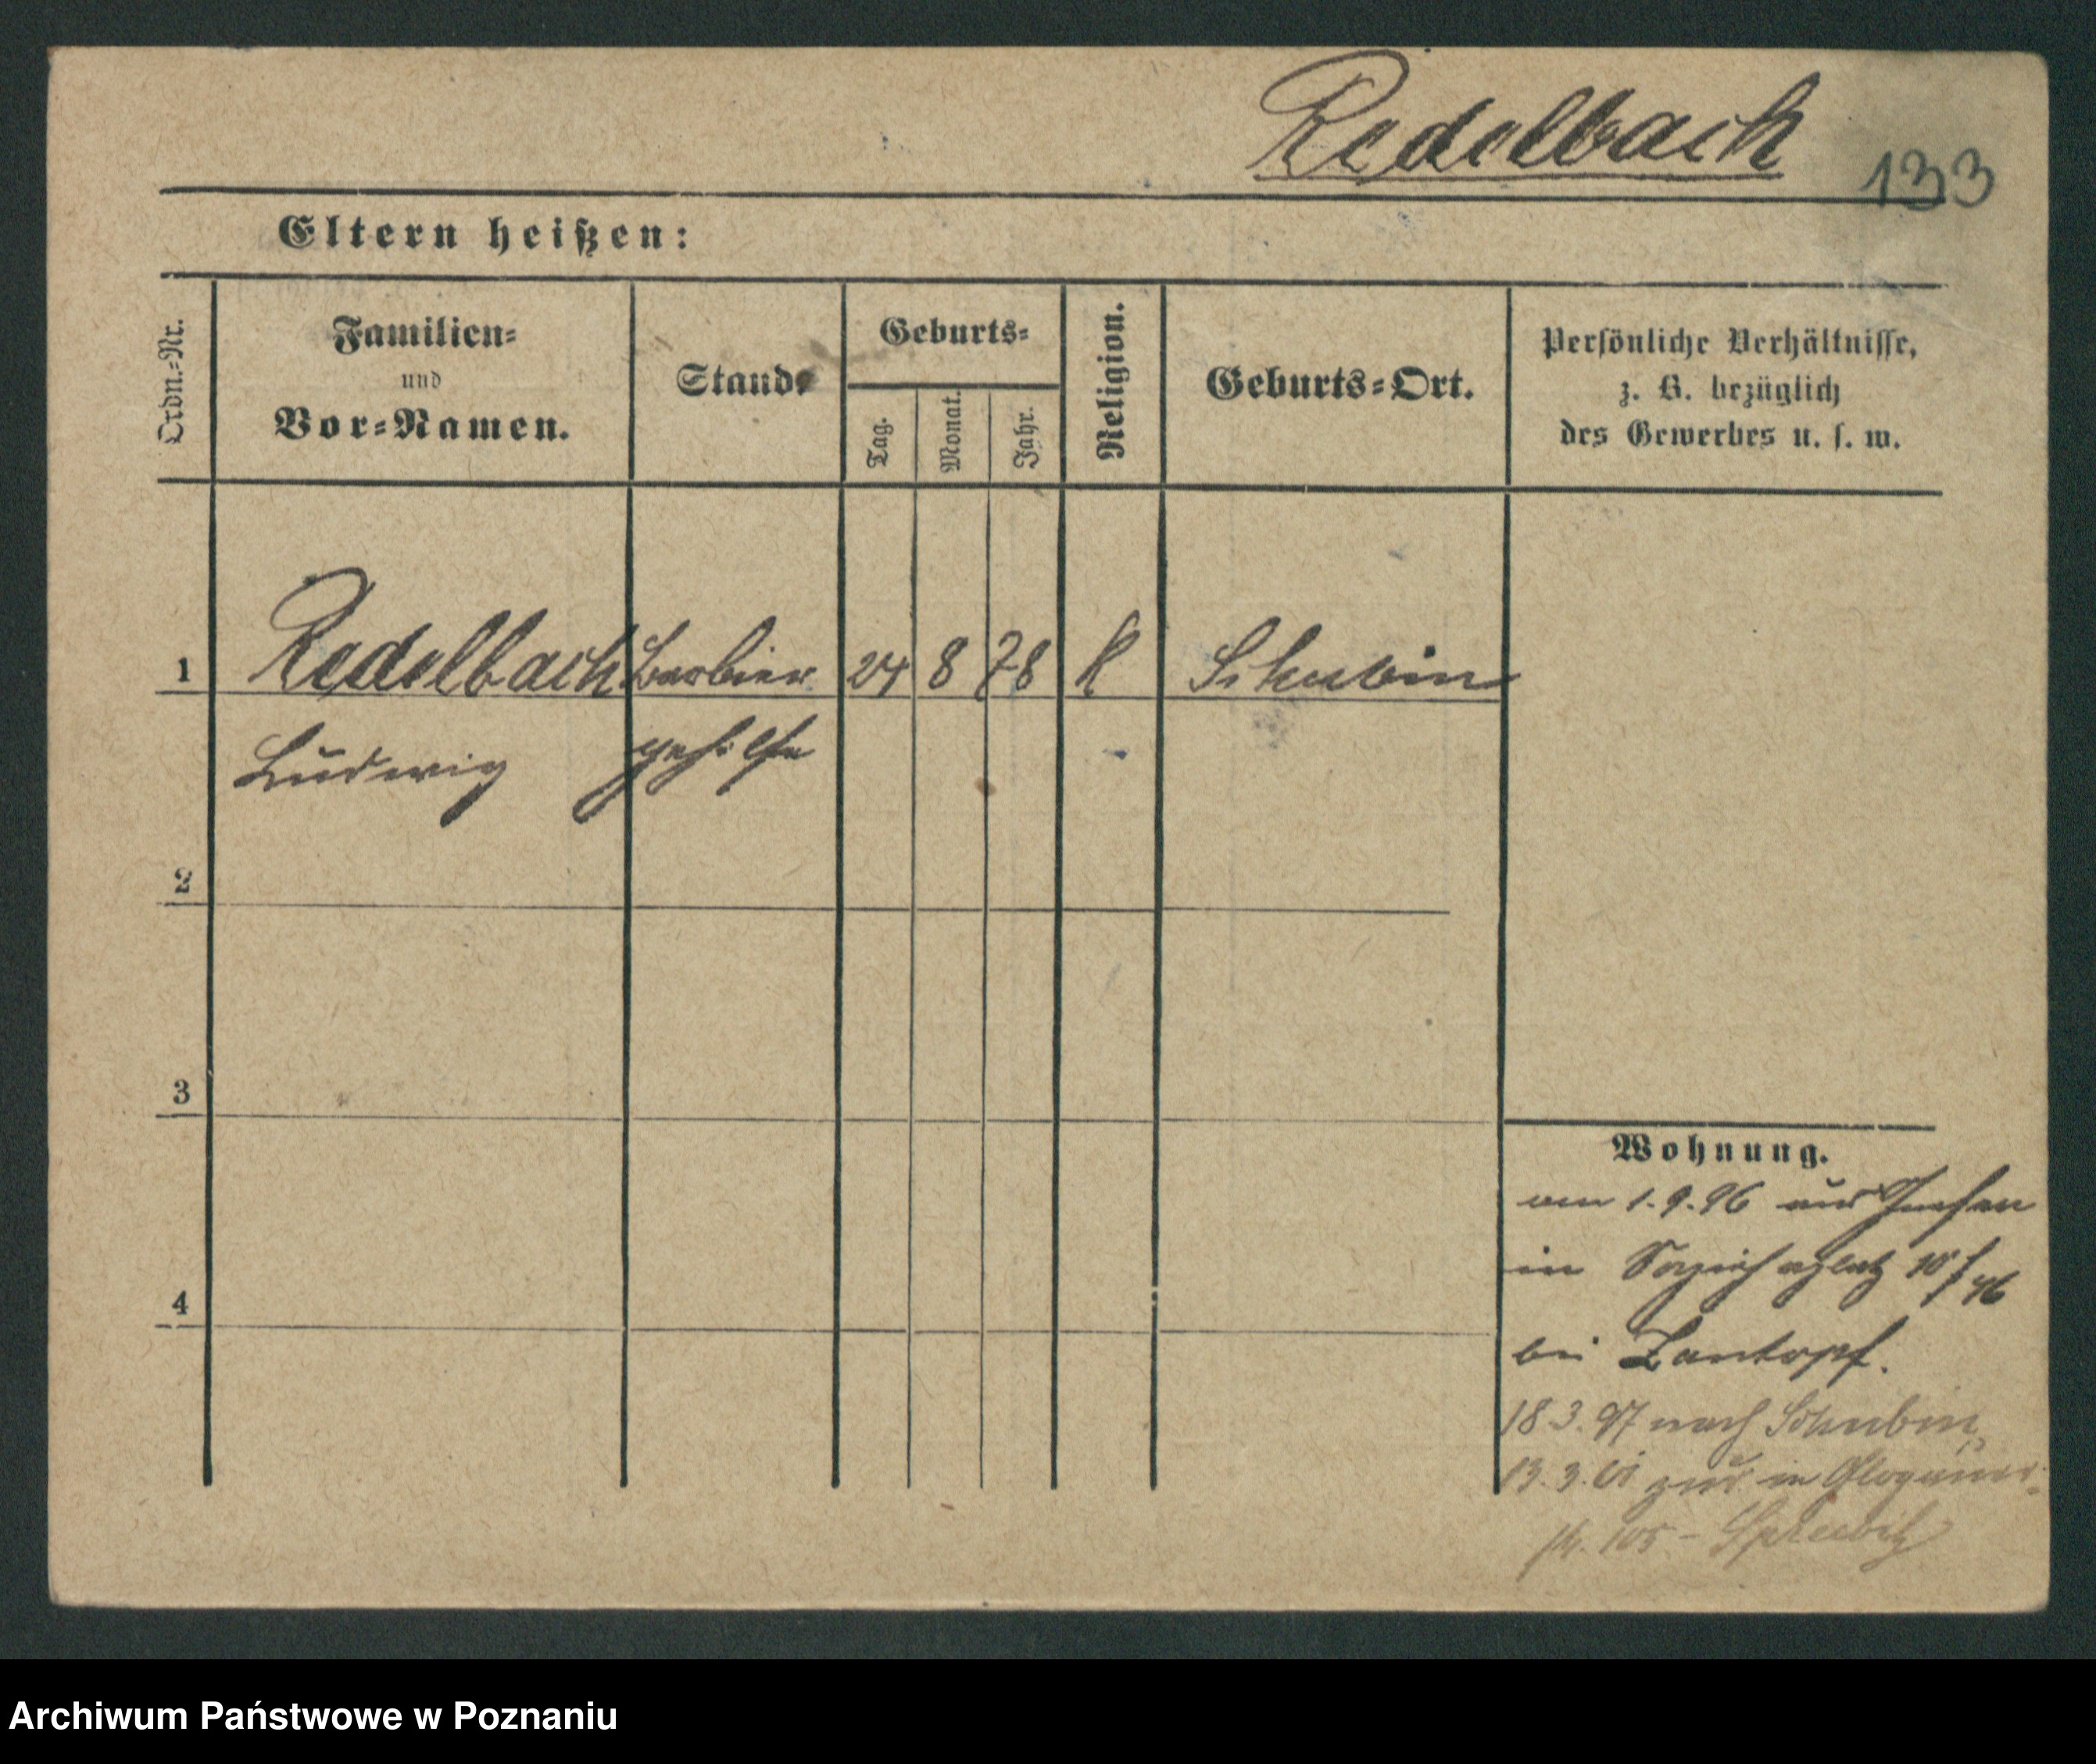 Redelbach
133
Eltern heißen:
Ordn.-Nr.
Familien-
und
Vor-Namen.
Stand.
Geburts-
Tag.
Monat.
Jahr.
Religion.
Geburts-Ort.
Persönliche Verhältnisse,
z. B. bezüglich
des Gewerbes u. s. w.
1 Redelbach Barbier 24 8 78 K Schubin
Ludwig gehilfe
2
3
4
Wohnung.
am 1.9.96 aus Gnesen
in
bei Zantopf.
18.3.97 nach Schubin
13.3.01 zur. in Glogauer-
str. 105 -
Archiwum Państwowe w Poznaniu